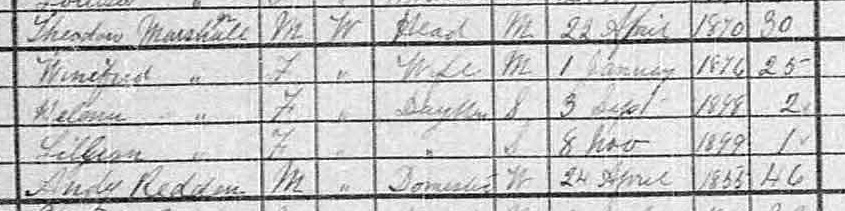 Theodore Marshall M W Head M 22 April 1870 30
Winifred " F " Wife M 1 January 1876 25
" F " Daughter S 3 Sept 1898 2
Lillian " F " " S 8 Nov 1899 1
Andy Redden M " Domestic W 24 April 1855 46